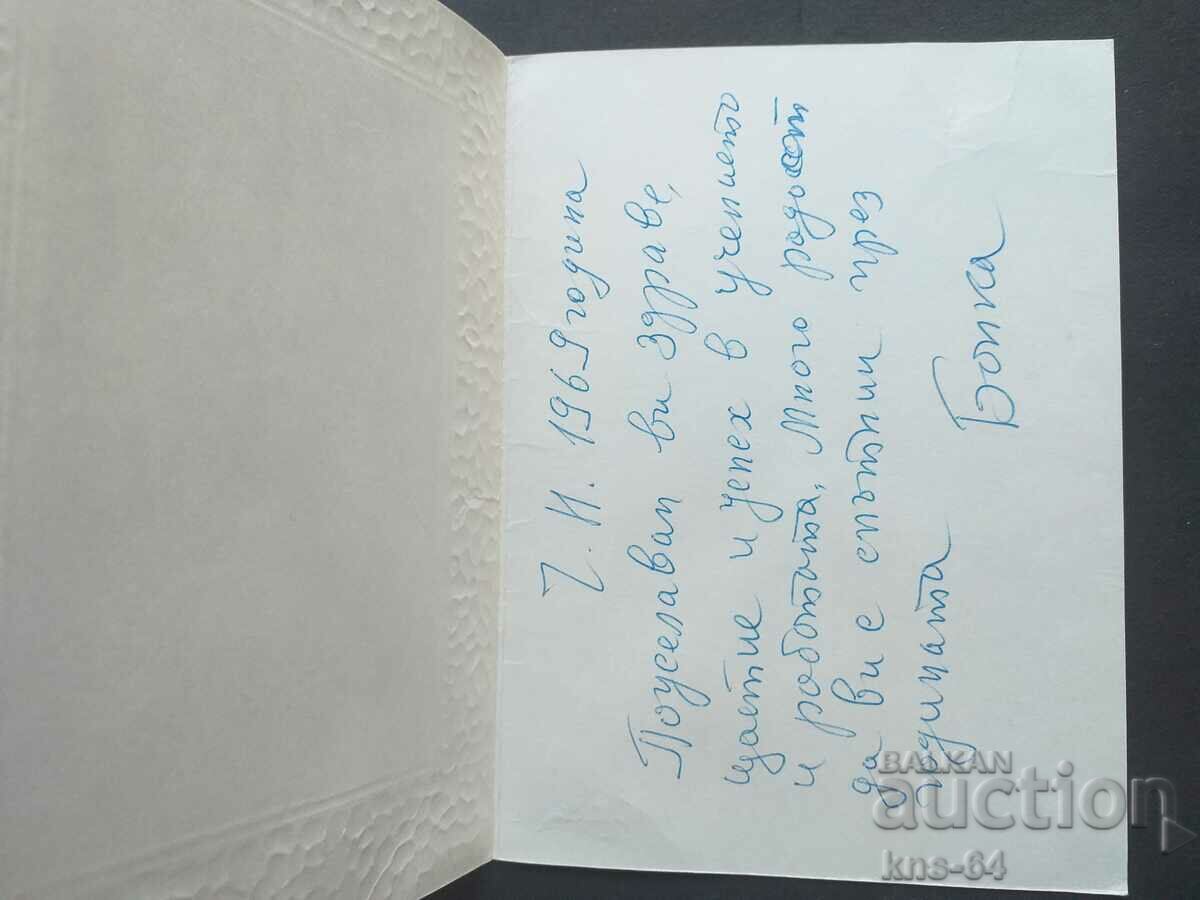 Ч. Н. 1969 година
Пожелавам ви здраве,
щастие и успех в учението
и работата, Много радост
да ви е спътник през
годината
Бонка
BALKAN
auction
kns-64